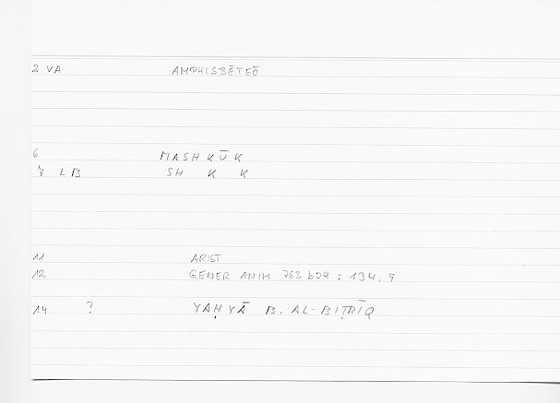 2 VA AMPHISBĒTEŌ
6 MASHKŪK
7 LB SH K K
11 ARIST
12 GENER ANIM 763 b29 : 134, 9
14 ? YAḤYĀ B. AL-BIṬRĪQ